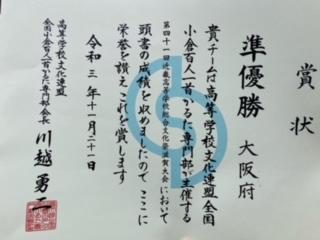 賞状
準優勝 大阪府
貴チームは高等学校文化連盟全国
小倉百人一首かるた専門部が主催する
第四十一回近畿高等学校総合文化祭滋賀大会において
頭書の成績を収めましたのでここに
栄誉を讃えこれを賞します
令和三年十一月二十一日
高等学校文化連盟
全国小倉百人一首かるた専門部会長
川越勇二